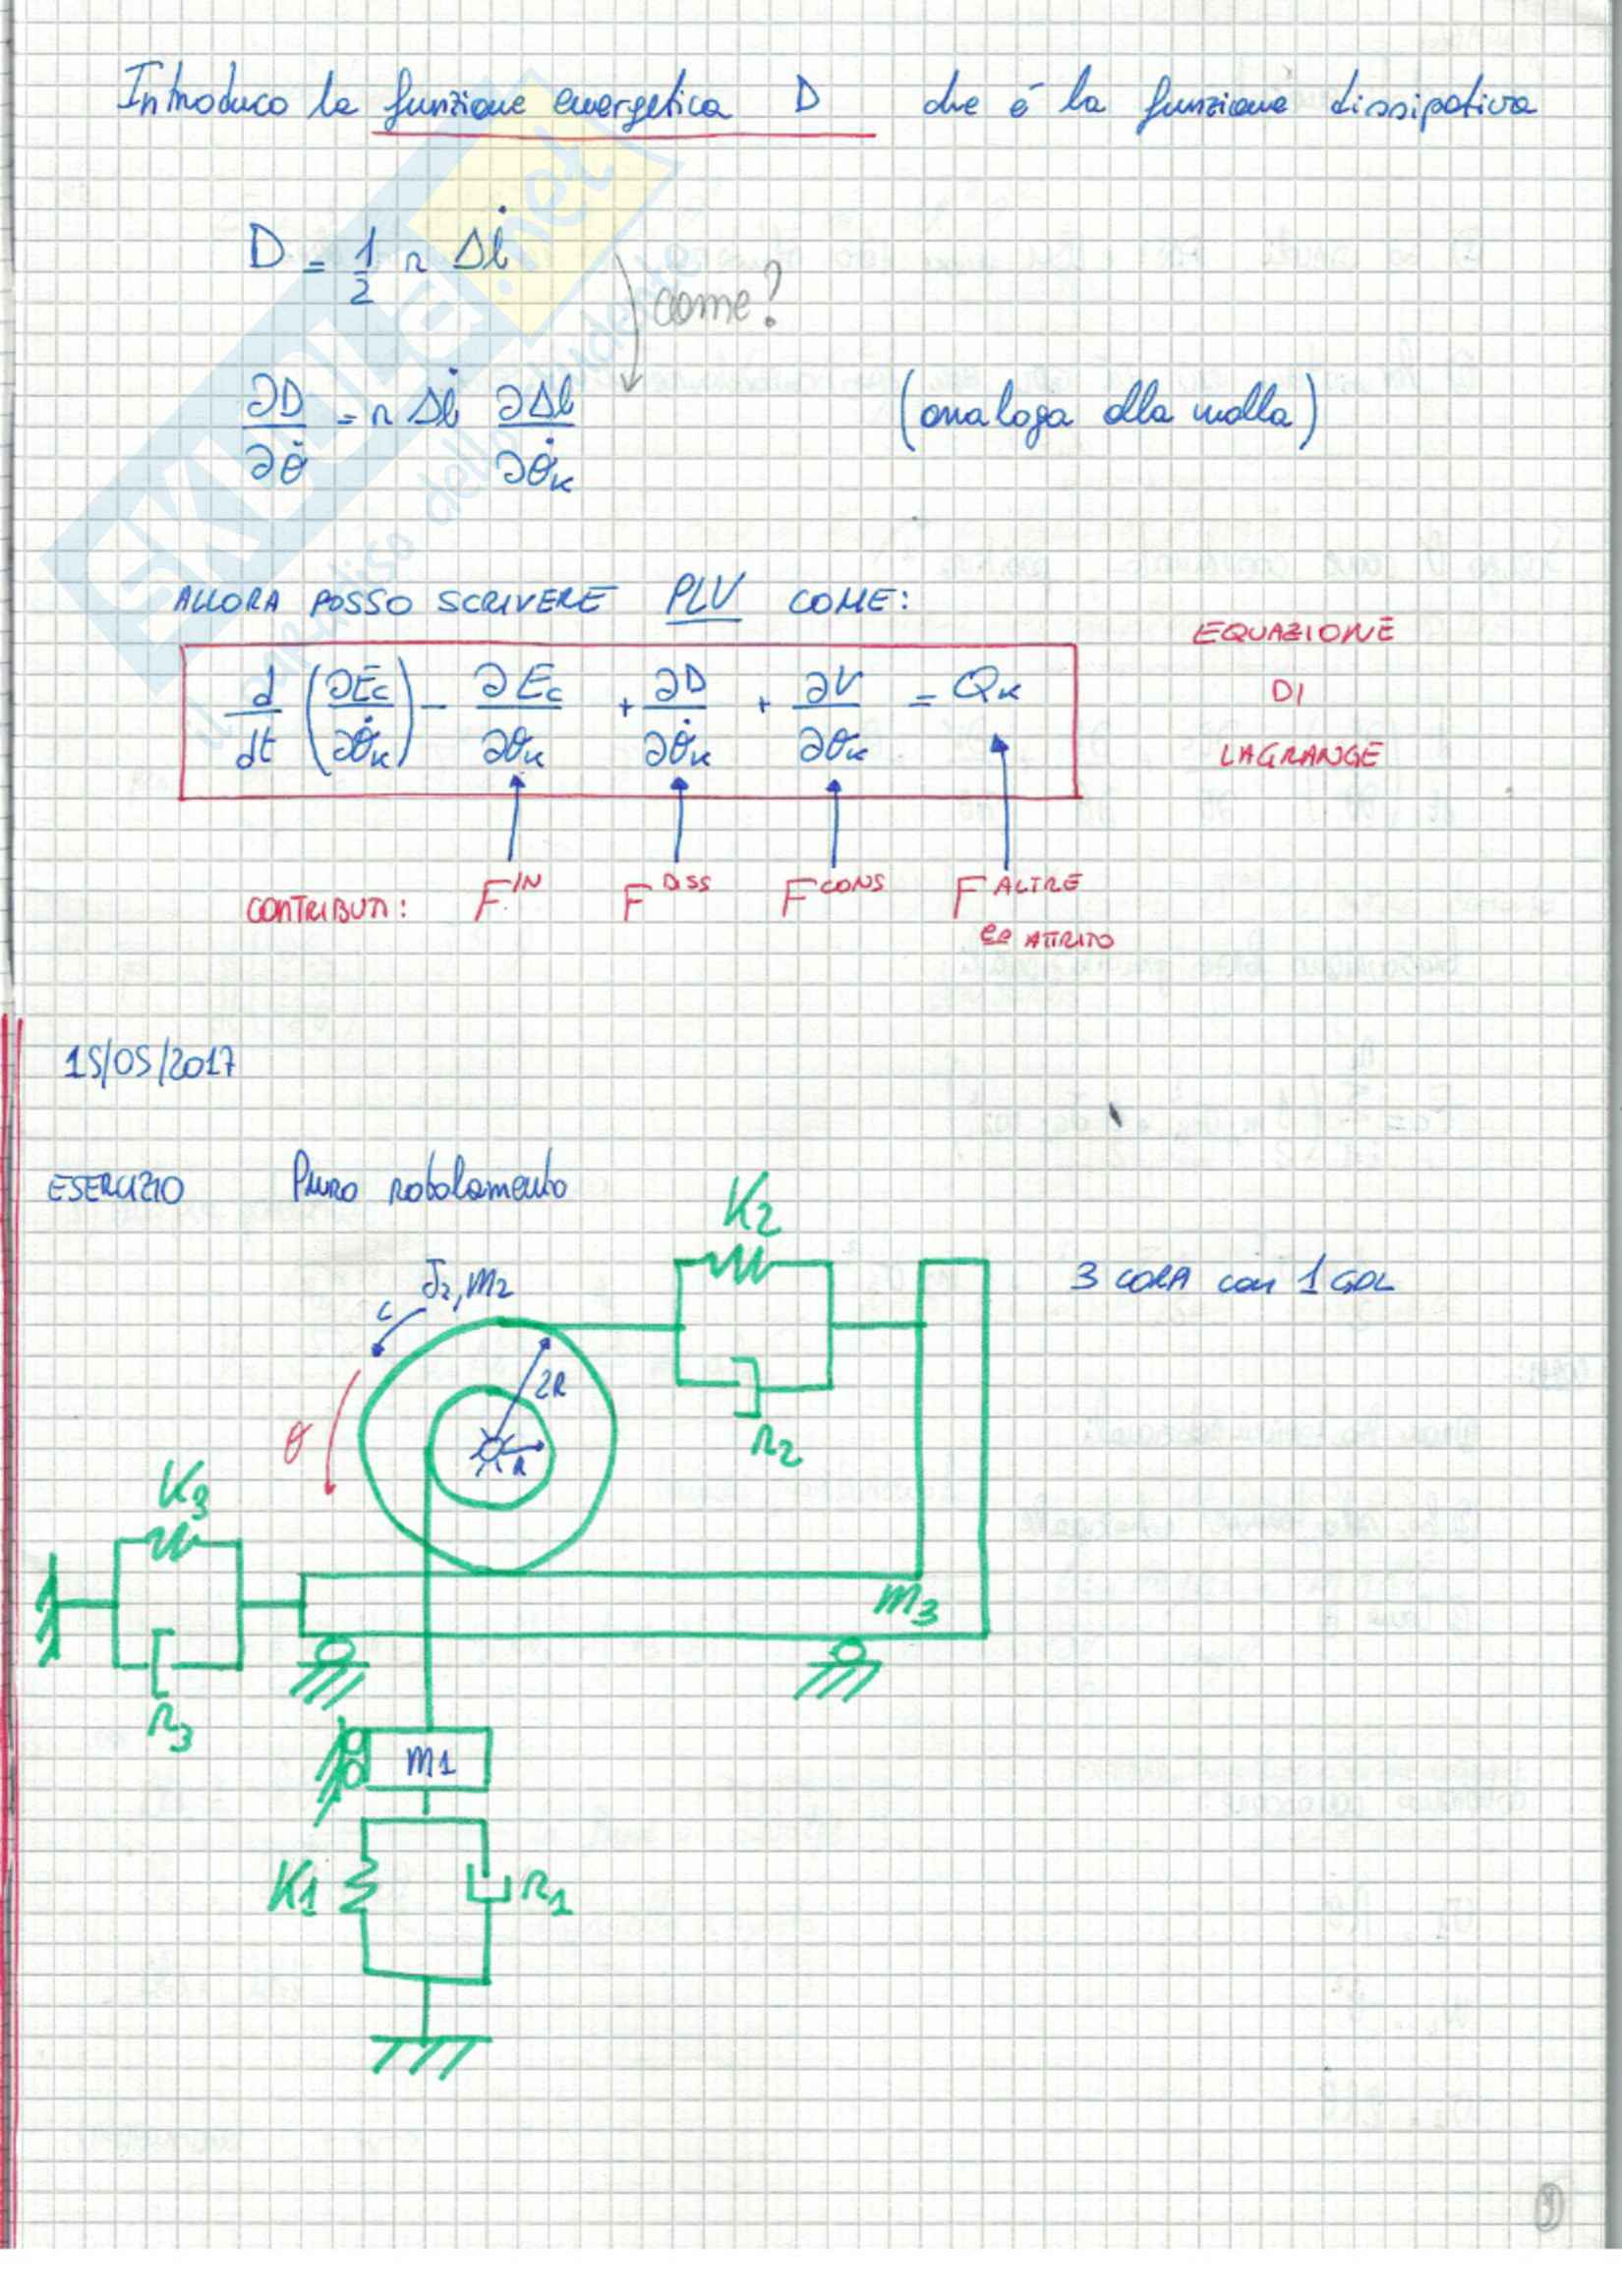 Introduco la funzione energetica D che è la funzione dissipativa
D = 1/2 r Δl̇
come?
∂D/∂θ̇ = r Δl̇ ∂Δl̇/∂θ̇ₖ (analoga alla molla)
ALLORA POSSO SCRIVERE PLV COME:
d/dt (∂Ec/∂θ̇ₖ) - ∂Ec/∂θₖ + ∂D/∂θ̇ₖ + ∂V/∂θₖ = Qₖ
EQUAZIONE
DI
LAGRANGE
CONTRIBUTI: F^IN F^DISS F^CONS F^ALTRE
es ATTRITO
15/05/2017
ESERCIZIO Puro rotolamento
K2
J2, m2
3 CORPI con 1 GDL
C
2R
R
θ
r2
K3
m3
r3
m1
K1
r1
SKUOLA.net
il paradiso dello studente